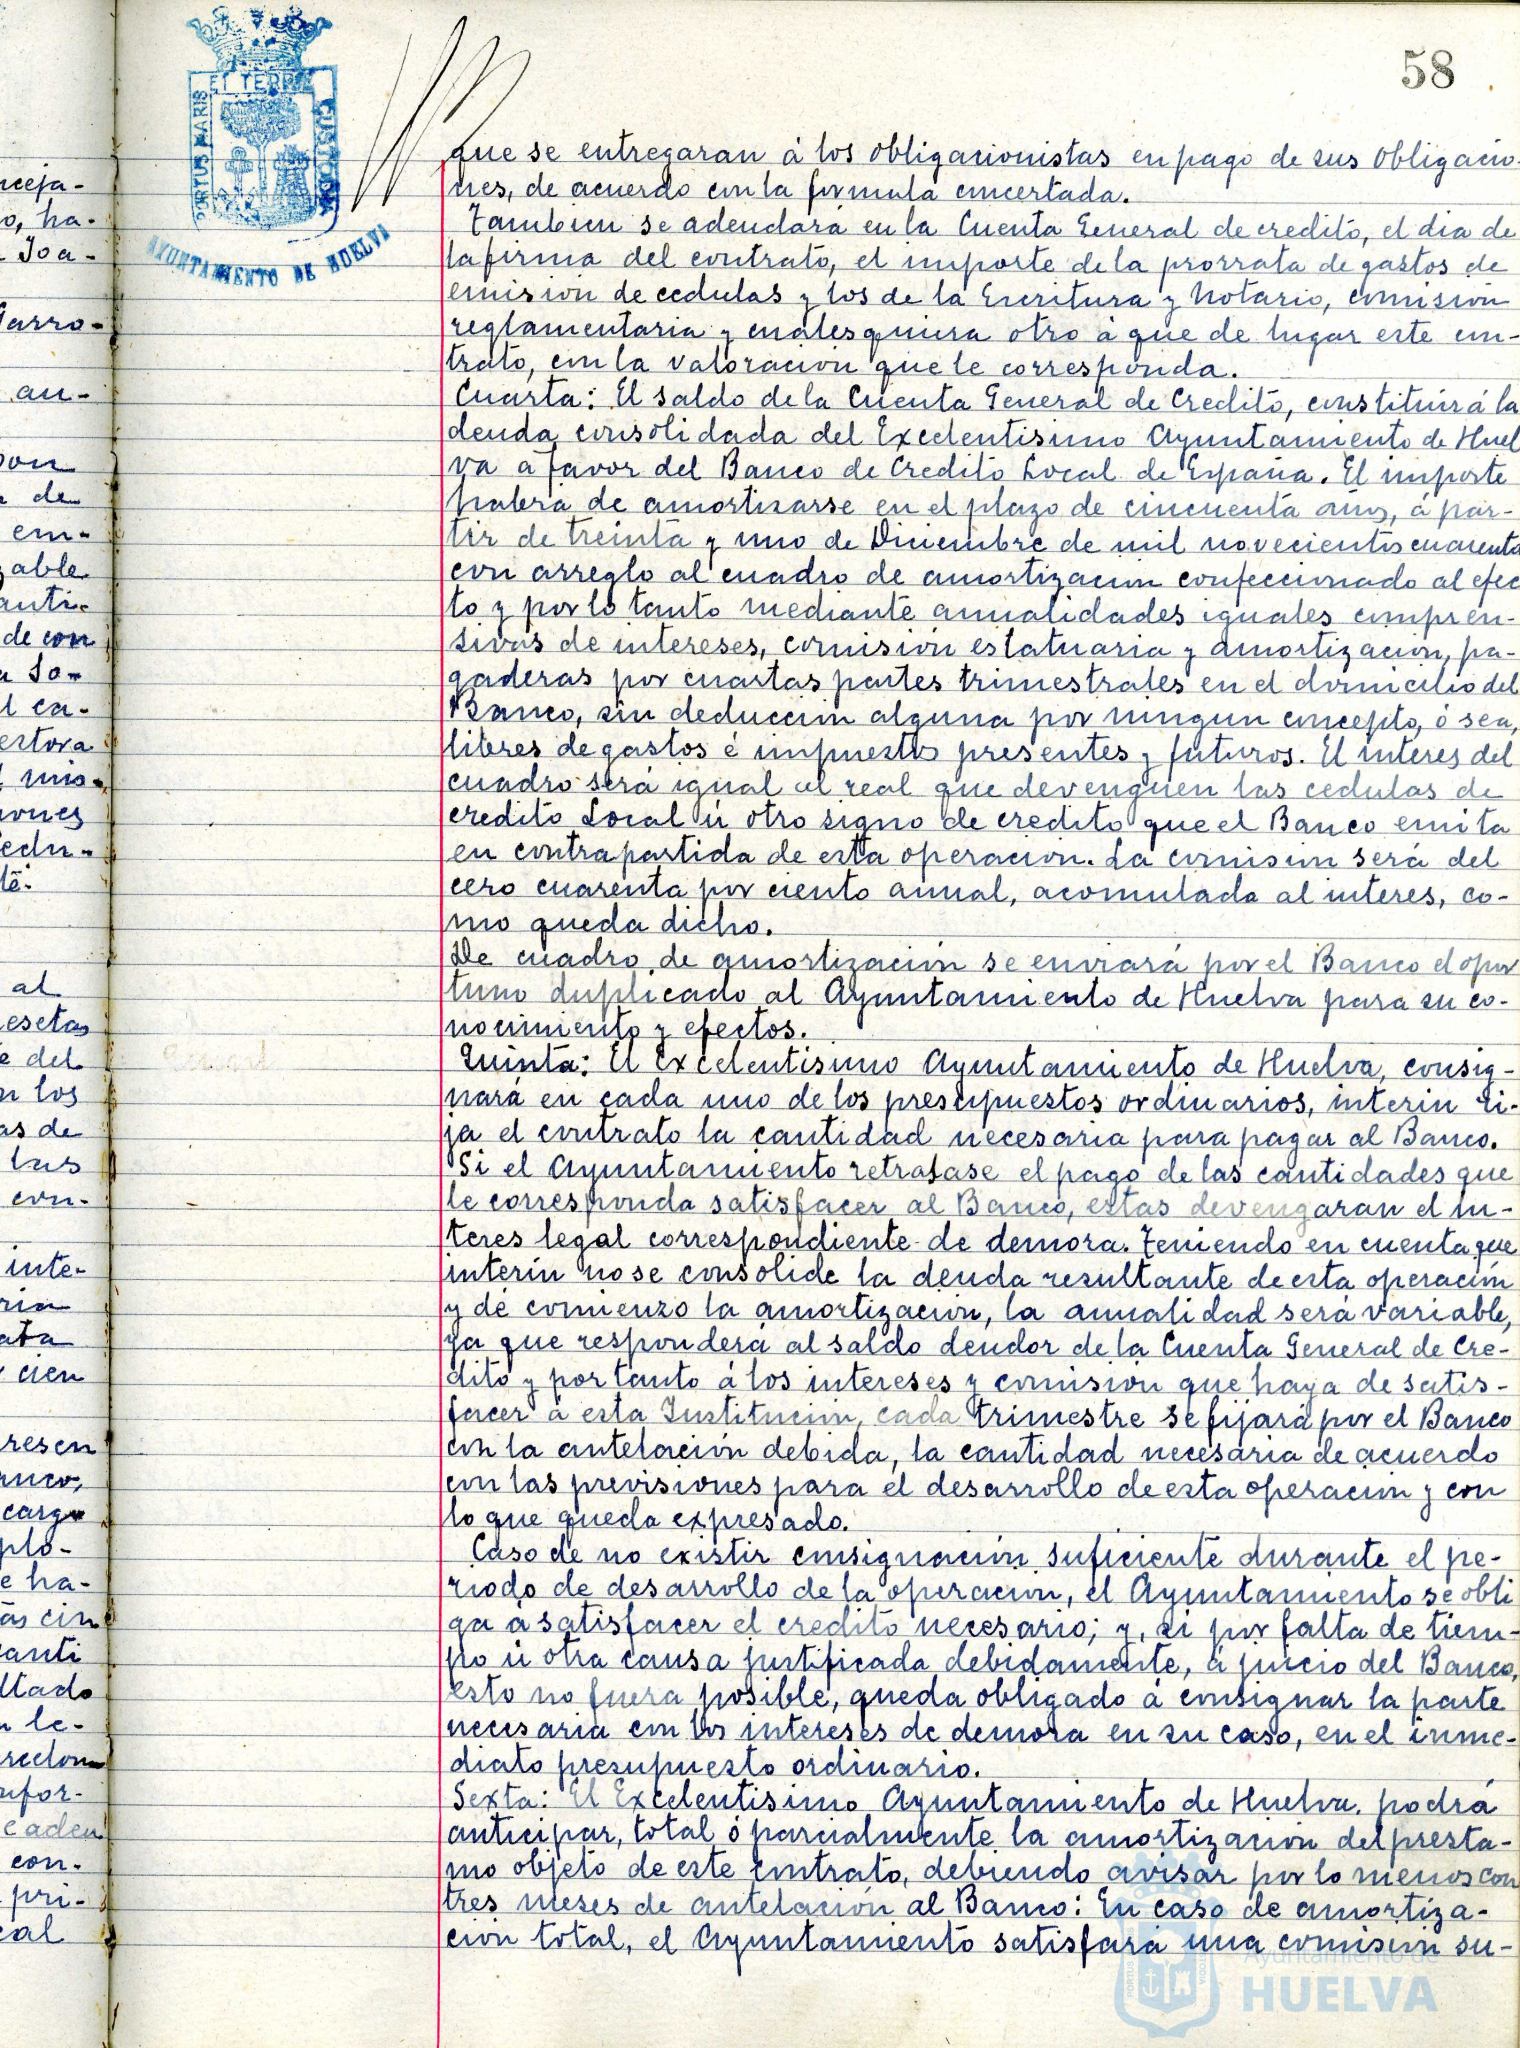 58
PORTUS MARIS ET TERRE CUSTODIA
AYUNTAMIENTO DE HUELVA
que se entregaran á los obligacionistas en pago de sus obligacio-
nes, de acuerdo con la formula concertada.
Tambien se adeudará en la Cuenta General de credito, el dia de
la firma del contrato, el importe de la prorrata de gastos de
emision de cedulas y los de la Escritura y Notario, comisión
reglamentaria y cualesquiera otro á que de lugar este con-
trato, con la valoracion que le corresponda.
Cuarta: El saldo de la Cuenta General de Credito, constituirá la
deuda consolidada del Excelentisimo Ayuntamiento de Huel
va a favor del Banco de Credito Local de España. El importe
habrá de amortizarse en el plazo de cincuenta años, á par-
tir de treinta y uno de Diciembre de mil novecientos cuarenta
con arreglo al cuadro de amortizacion confeccionado al efec
to y por lo tanto mediante anualidades iguales compren-
sivas de intereses, comisión estatuaria y amortización, pa-
gaderas por cuartas partes trimestrales en el domicilio del
Banco, sin deduccion alguna por ningun concepto, ó sea,
liberes de gastos é impuestos presentes y futuros. El interes del
cuadro será igual al real que devenguen las cedulas de
credito Local ú otro signo de credito que el Banco emita
en contrapartida de esta operación. La comision será del
cero cuarenta por ciento anual, acomulada al interes, co-
mo queda dicho.
De cuadro de amortización se enviará por el Banco el opor
tuno duplicado al Ayuntamiento de Huelva para su co-
nocimiento y efectos.
Quinta: El Excelentisimo Ayuntamiento de Huelva, consig-
nará en cada uno de los presupuestos ordinarios, interin ri-
ja el contrato la cantidad necesaria para pagar al Banco.
Si el Ayuntamiento retrasase el pago de las cantidades que
le corresponda satisfacer al Banco, estas devengaran el in-
teres legal correspondiente de demora. Teniendo en cuenta que
interin no se consolide la deuda resultante de esta operación
y dé comienzo la amortización, la anualidad será variable,
ya que responderá al saldo deudor de la Cuenta General de Cre-
dito y por tanto á los intereses y comision que haya de satis-
facer á esta Institucion, cada trimestre se fijará por el Banco
con la antelación debida, la cantidad necesaria de acuerdo
con las previsiones para el desarrollo de esta operacion y con
lo que queda expresado.
Caso de no existir consignación suficiente durante el pe-
riodo de desarrollo de la operacion, el Ayuntamiento se obli
ga á satisfacer el credito necesario; y, si por falta de tiem-
po ú otra causa justificada debidamente, á juicio del Banco,
esto no fuera posible, queda obligado á consignar la parte
necesaria con los intereses de demora en su caso, en el inme-
diato presupuesto ordinario.
Sexta: El Excelentisimo Ayuntamiento de Huelva, podrá
anticipar, total ó parcialmente la amortización del presta-
mo objeto de este contrato, debiendo avisar por lo menos con
tres meses de antelación al Banco: En caso de amortiza-
cion total, el Ayuntamiento satisfará una comision su-
Ayuntamiento de
HUELVA